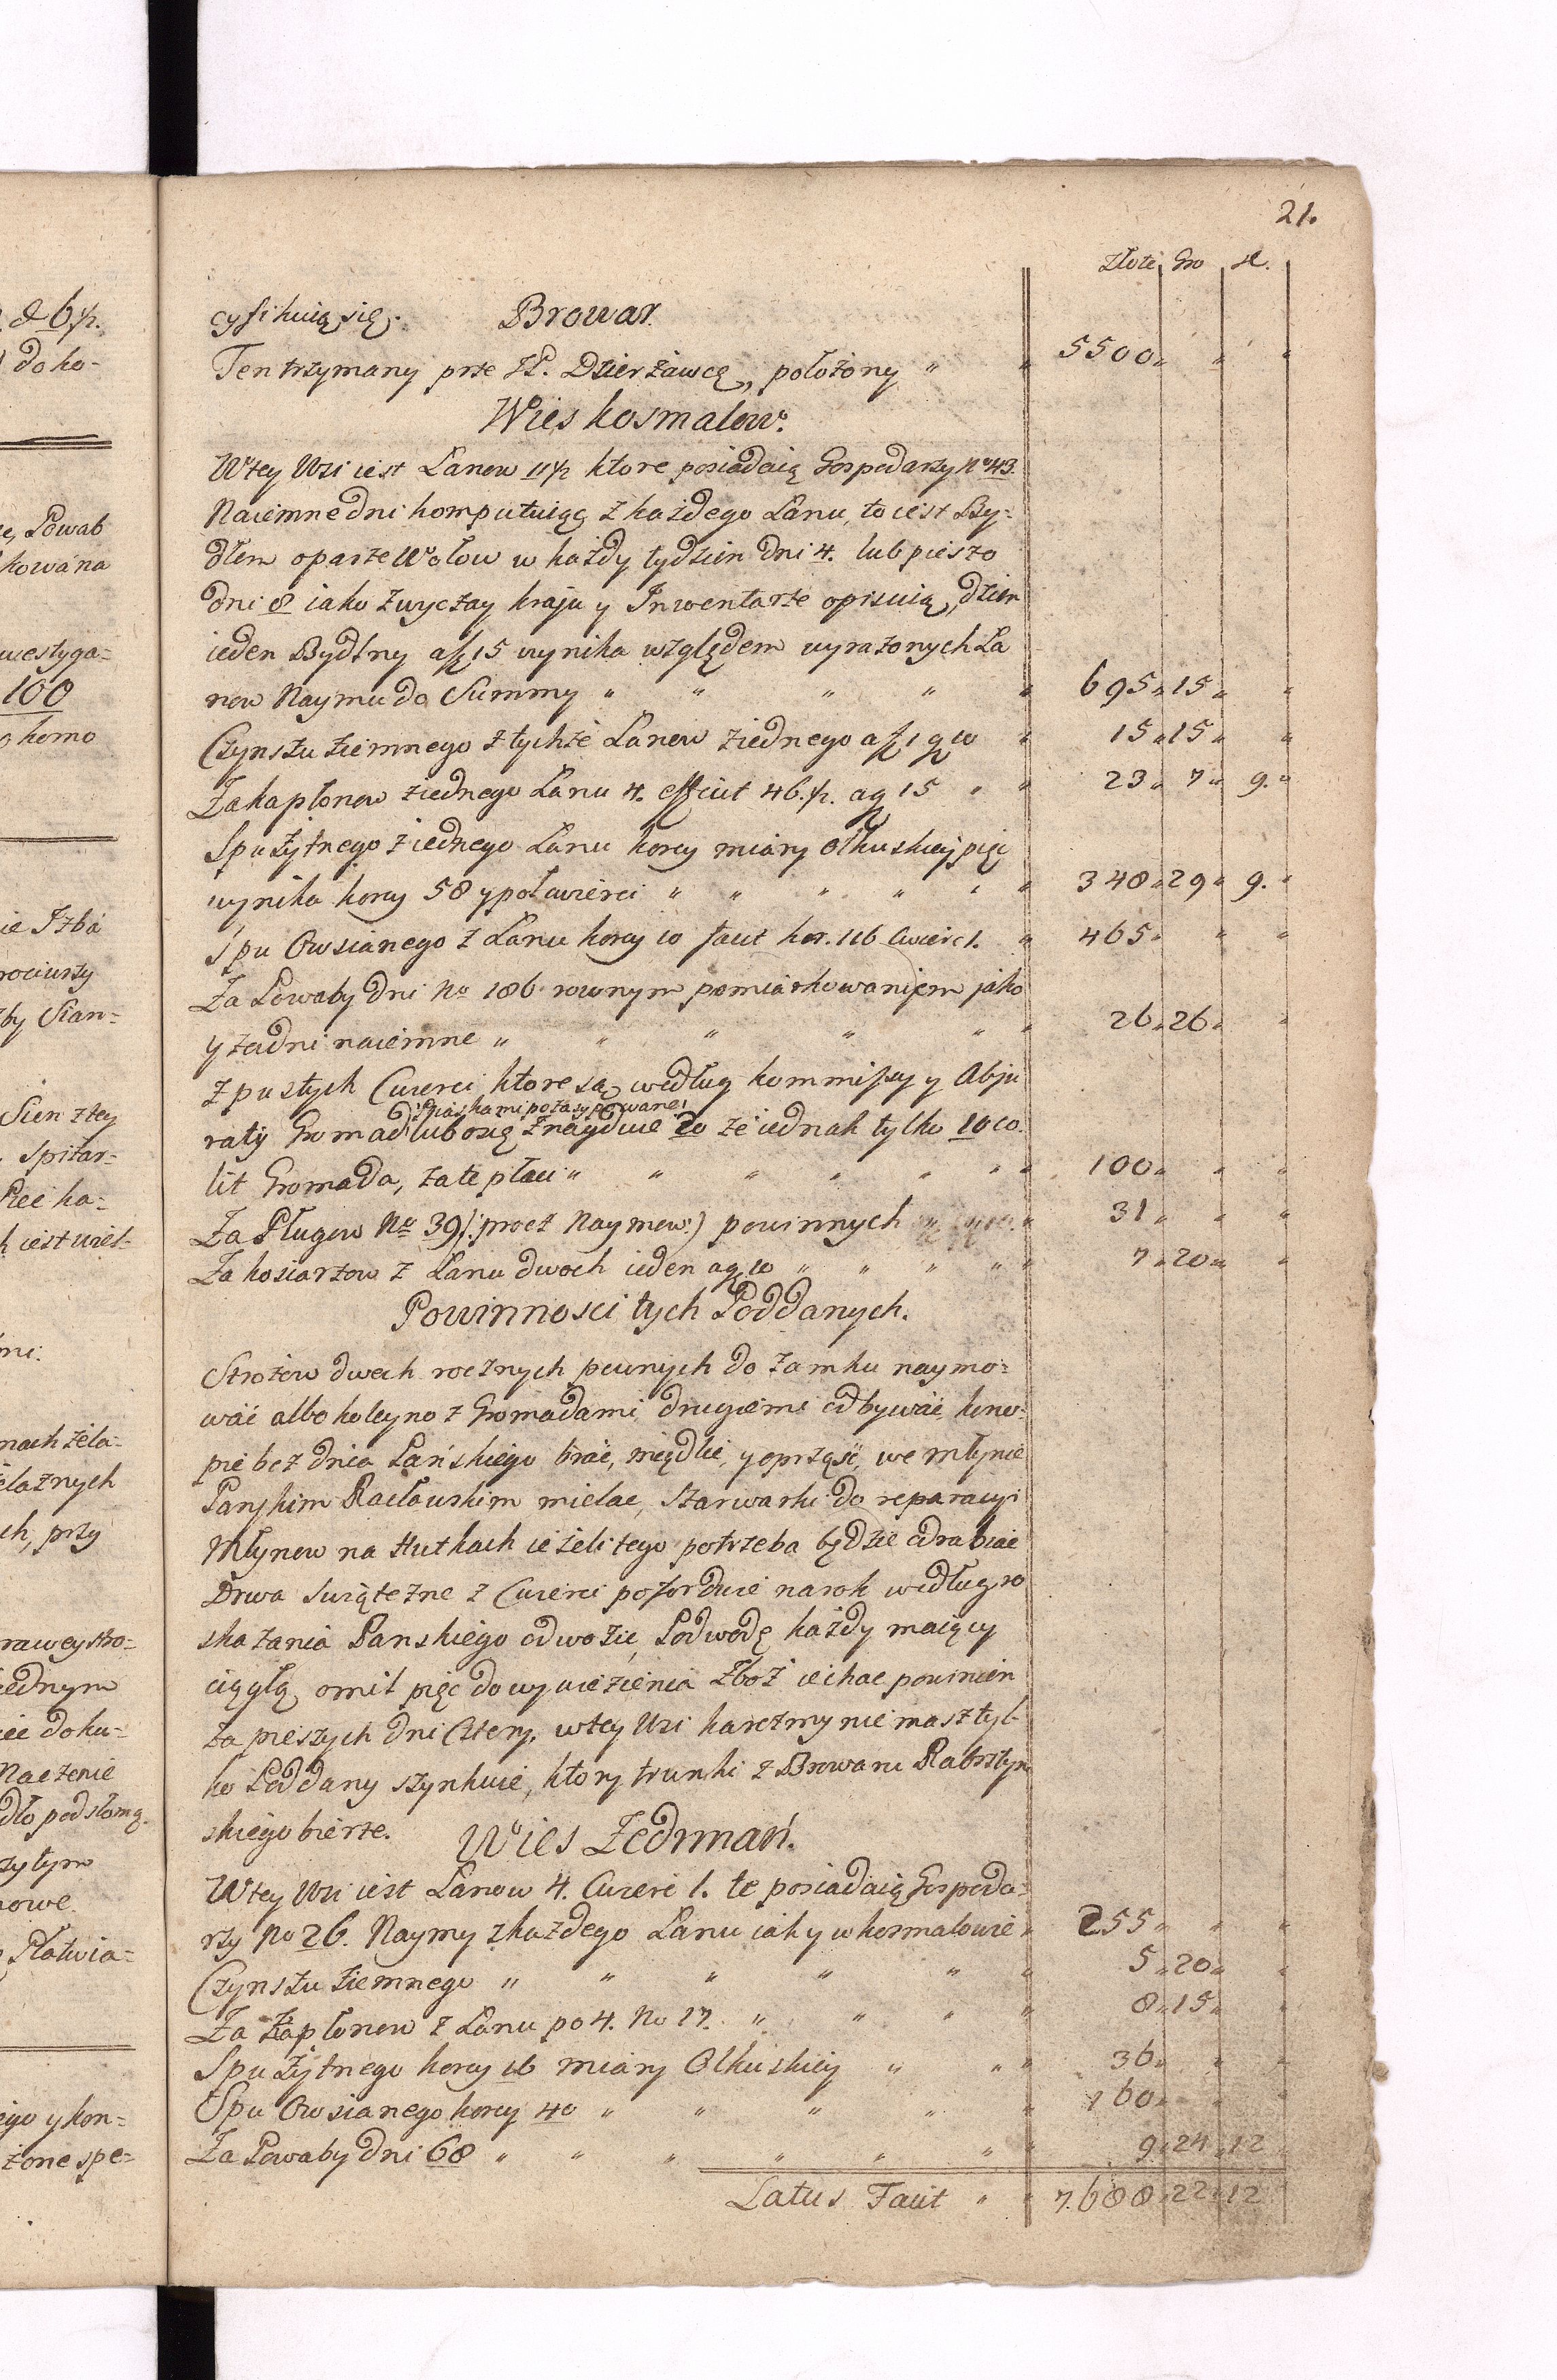 21.
Złote Gro sz.
cyfikuią się. Browar.
Ten trzymany prze JP. Dzierżawcę, położony " " 5500 " " "
Wies Kosmalow.
W tey Wsi iest Łanow 11 1/2 ktore posiadaią Gospodarzy No 43.
Naiemne dni komputuiąc z każdego Łanu, to iest By-
dłem oparze Wołow w każdy tydzien dni 4. lub pieszo
dni 8 iako zwyczay kraju y Inwentarze opisuią, dzien
ieden Bydlny a 15 wynika względem wyrażonych Ła
now Naymu do Summy " " " " " 695 " 15 " "
Czynszu ziemnego z tychże Łanow ziednego a f 1 g 10 " 15 " 15 " "
Za kapłonow ziednego Łanu 4. efficiut 46. 1/2. a g 15 " " 23 " 7 " 9. "
Spu Żytnego z iednego Łanu korcy miary Olkuskiey pięć
wynika korcy 58 y poł cwierci " " " " " " 348 " 29 " 9. "
Spu Owsianego z Łanu korcy 10 facit kor. 116 Cwierc 1. " 465 " " "
Za Powaby dni No 186 rownym pomiarkowaniem jako
y za dni naiemne " " " " " " 26 " 26 " "
z pustych Cwierci ktore są według kommissyi y Abju
/:piaskami pozasypowane:/
raty Gromad lubo się znayduie 20 że iednak tylko 10 co
lit Gromada, za te płaci " " " " " " 100 " " "
Za Pługow No 39 /: procz Naymow:/ powinnych " 31 " " "
Za kosiarzow z Łanu dwoch ieden a g 10 " " " " " 7 " 20 " "
Powinnosci tych Poddanych.
Strożow dwoch rocznych pewnych do zamku naymo-
wać albo koleyno z Gromadami drugiemi odbywać, kono-
pie bez dnia Pańskiego brać, międlić, y oprząść, we młynie
Panskim Racławskim mielac, Szarwarki do reparacyi
Młynow na Hutkach ieżeli tego potrzeba będzie odrabiac
Drwa swiąteczne z Cwierci po forduie na rok według ro
skazania Panskiego odwozic, Podwodę każdy maiący
ciągłą o mil pięć do wywiezienia Zboż iechac powinien
za pieszych dni Cztery. w tey Wsi karczmy nie masz tyl-
ko Poddany szynkuie, ktory trunki z Browaru Rabsztyn
skiego bierze. Wies Zedrman.
W tey Wsi iest Łanow 4. Cwierc 1. te posiadaią Gospoda-
rzy No 26. Naymy z każdego Łanu iak y w Kosmalowie " 255 " " "
Czynszu ziemnego " " " " " " 5 " 20 " "
Za Kapłonow z Łanu po 4. No 17. " " " " 8 " 15 " "
Spu Żytnego korcy 16 miary Olkuskiey " " " 36 " " "
Spu Owsianego korcy 40 " " " " " 160 " " "
Za Powaby dni 68 " " " " " " " 9 " 24 " 12
Latus Facit " " 7.688 " 22 " 12
d 6 1/2.
do ko-
Powab
kowána
westyga-
100
komo
Izbá
by Scian-
Sien z tey
Spiżar-
Piec ka-
iest wiel-
nach żela-
elaznych
ch, przy
rawey stro-
iednym
doku-
Naczenie
dło pod słomą.
zy tym
nowe.
Płatwia-
ego y kon-
żone spe-